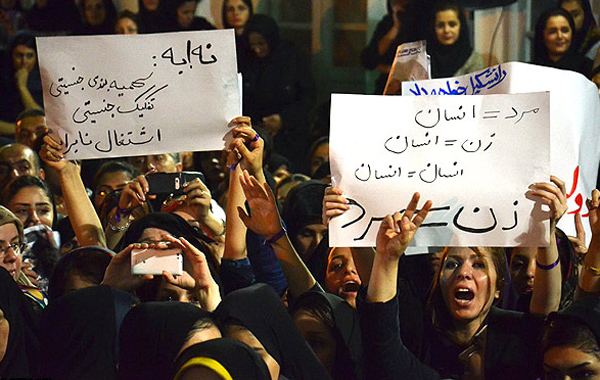 نه به :
سهمیه بندی جنسیتی
تفکیک جنسیتی
اشتغال نابرابر
مرد = انسان
زن = انسان
انسان = انسان
زن = مرد